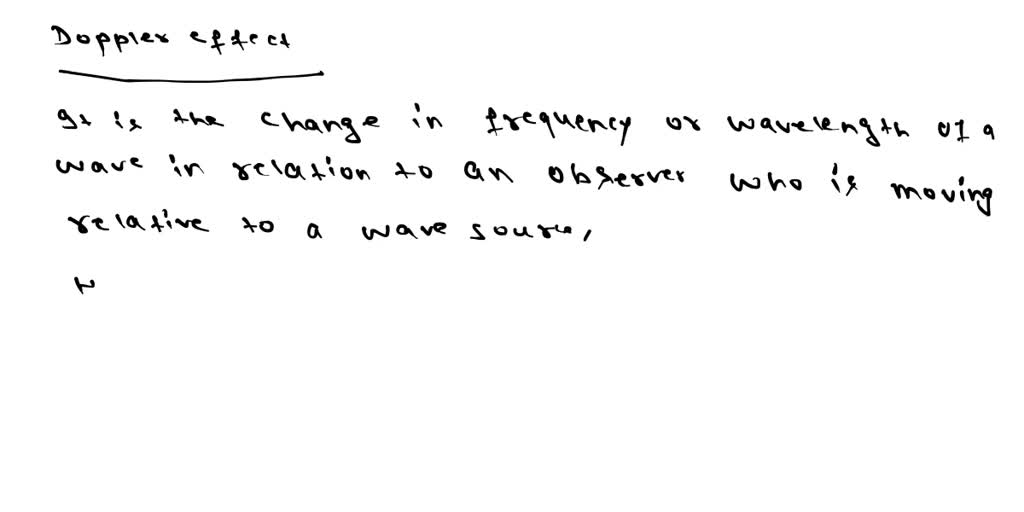 Doppler effect
It is the change in frequency or wavelength of a
wave in relation to an observer who is moving
relative to a wave source,